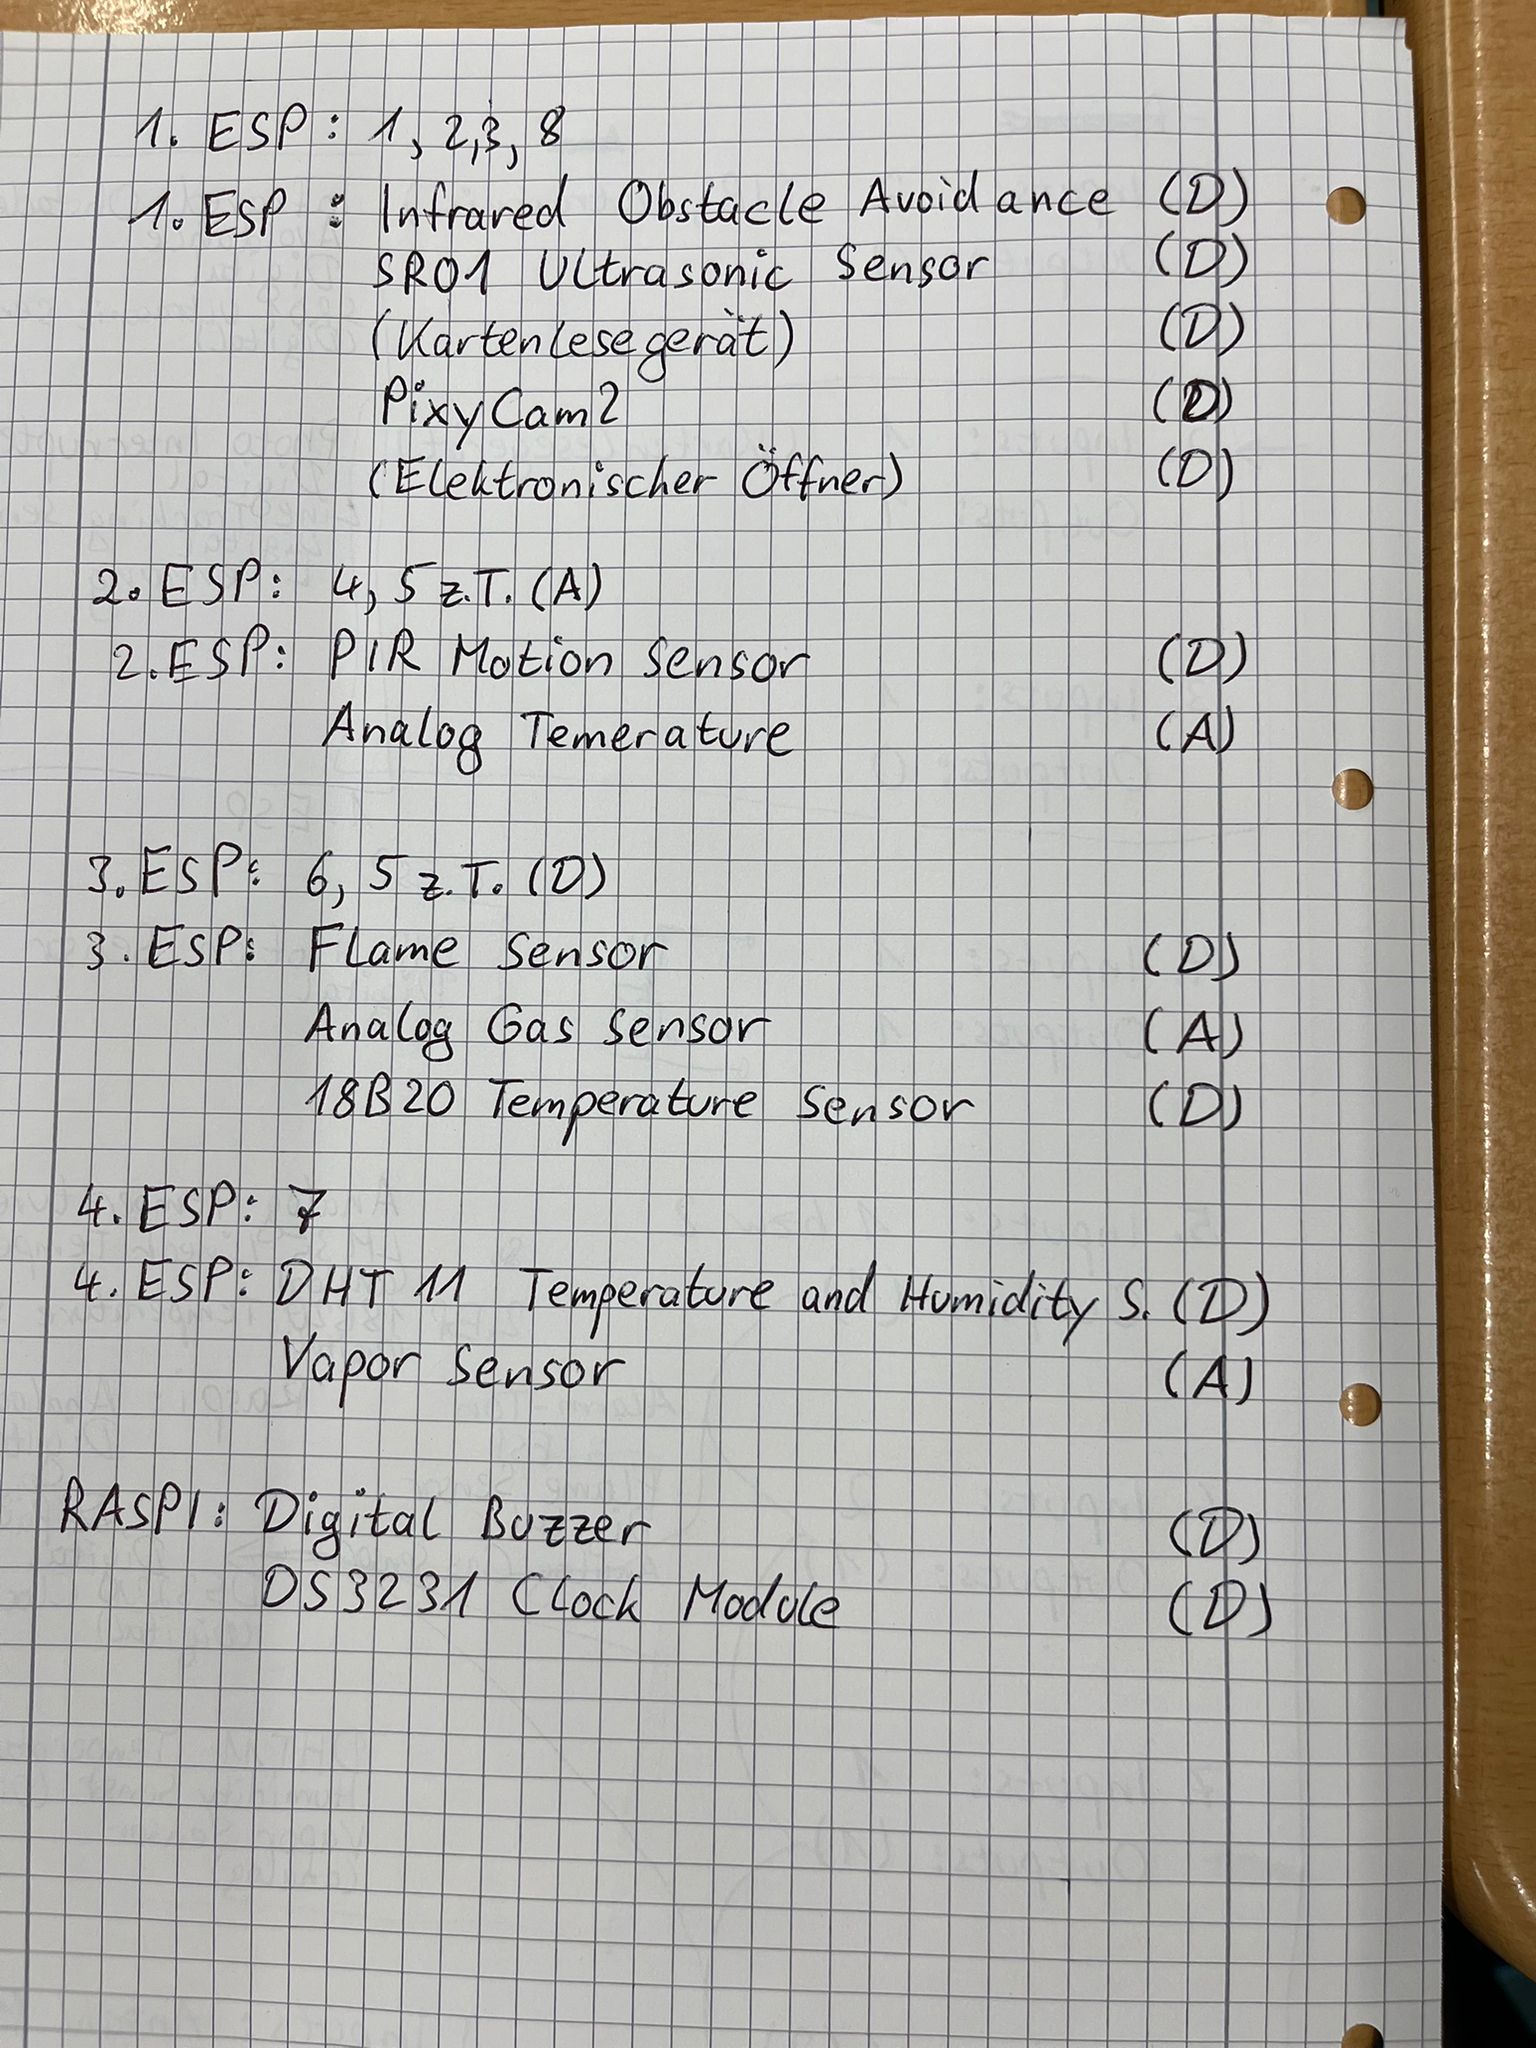 1. ESP: 1, 2, 3, 8
1. ESP: Infrared Obstacle Avoidance (D)
SR01 Ultrasonic Sensor (D)
(Kartenlesegerät) (D)
PixyCam2 (D)
(Elektronischer Öffner) (D)
2. ESP: 4, 5 z.T. (A)
2. ESP: PIR Motion Sensor (D)
Analog Temerature (A)
3. ESP: 6, 5 z.T. (D)
3. ESP: Flame Sensor (D)
Analog Gas Sensor (A)
18B20 Temperature Sensor (D)
4. ESP: 7
4. ESP: DHT 11 Temperature and Humidity S. (D)
Vapor Sensor (A)
RASPI: Digital Buzzer (D)
DS3231 Clock Module (D)